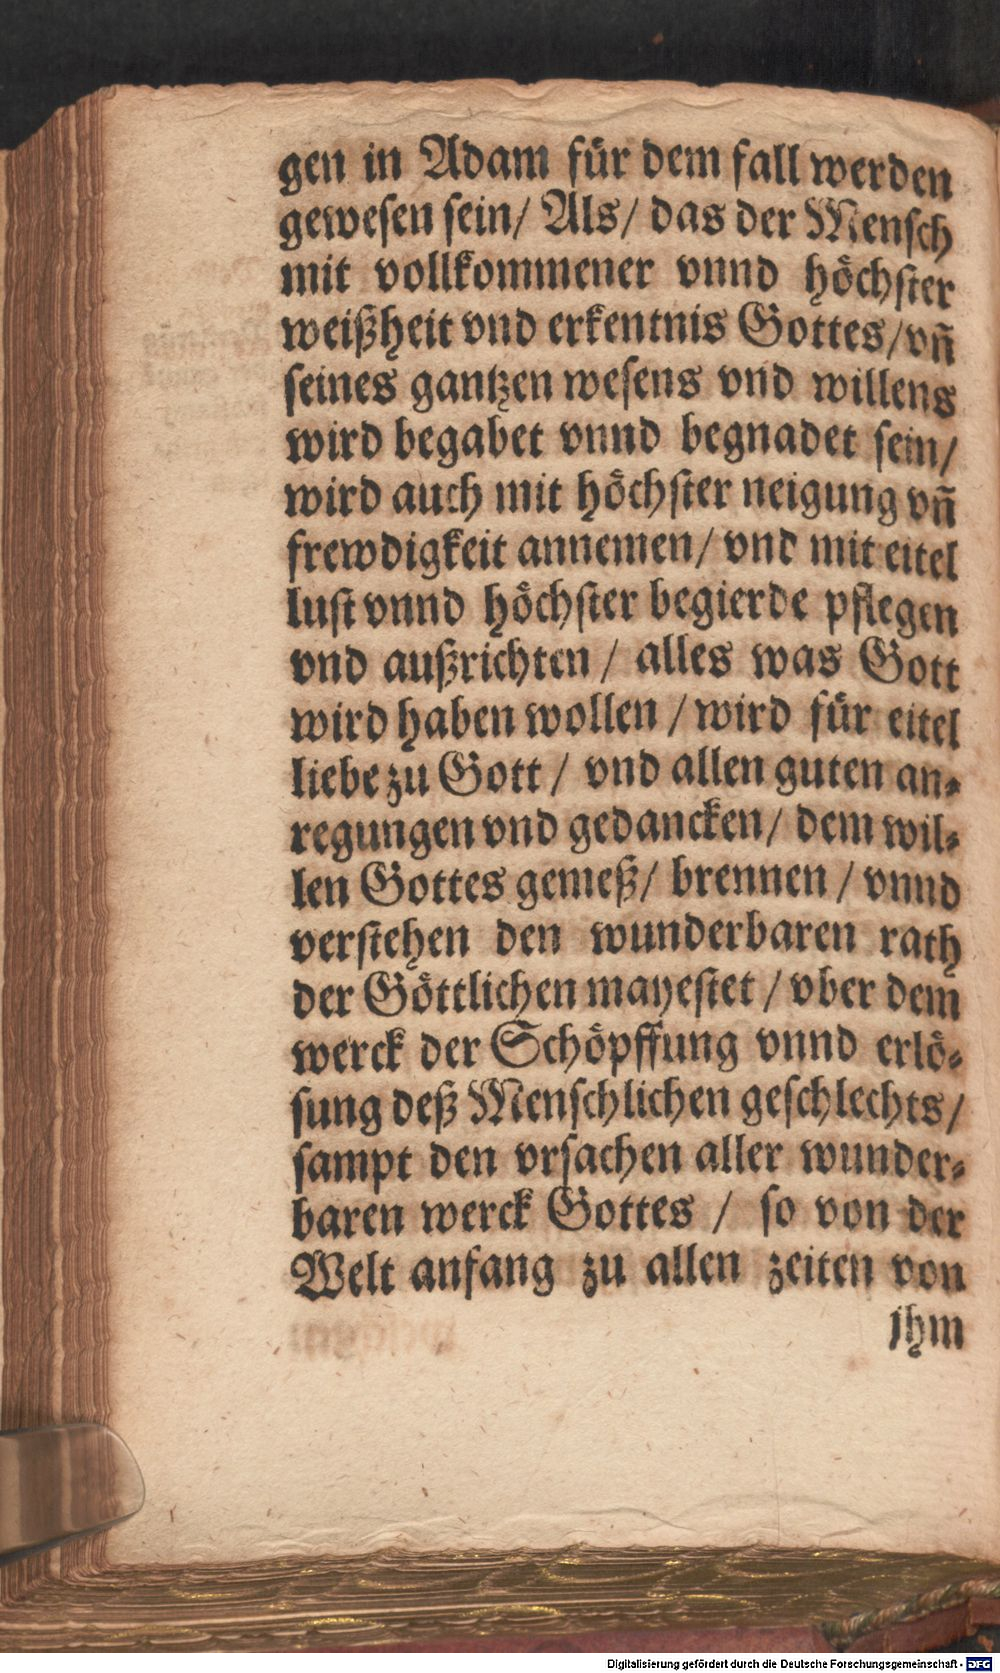 gen in Adam für dem fall werden
gewesen sein/ Als/ das der Mensch
mit vollkommener vnnd höchster
weißheit vnd erkentnis Gottes/ vñ
seines gantzen wesens vnd willens
wird begabet vnnd begnadet sein/
wird auch mit höchster neigung vñ
frewdigkeit annemen/ vnd mit eitel
lust vnnd höchster begierde pflegen
vnd außrichten / alles was Gott
wird haben wollen / wird für eitel
liebe zu Gott / vnd allen guten an-
regungen vnd gedancken/ dem wil-
len Gottes gemeß/ brennen / vnnd
verstehen den wunderbaren rath
der Göttlichen mayestet / vber dem
werck der Schöpffung vnnd erlö-
sung deß Menschlichen geschlechts/
sampt den vrsachen aller wunder-
baren werck Gottes / so von der
Welt anfang zu allen zeiten von
jhm
Digitalisierung gefördert durch die Deutsche Forschungsgemeinschaft - DFG